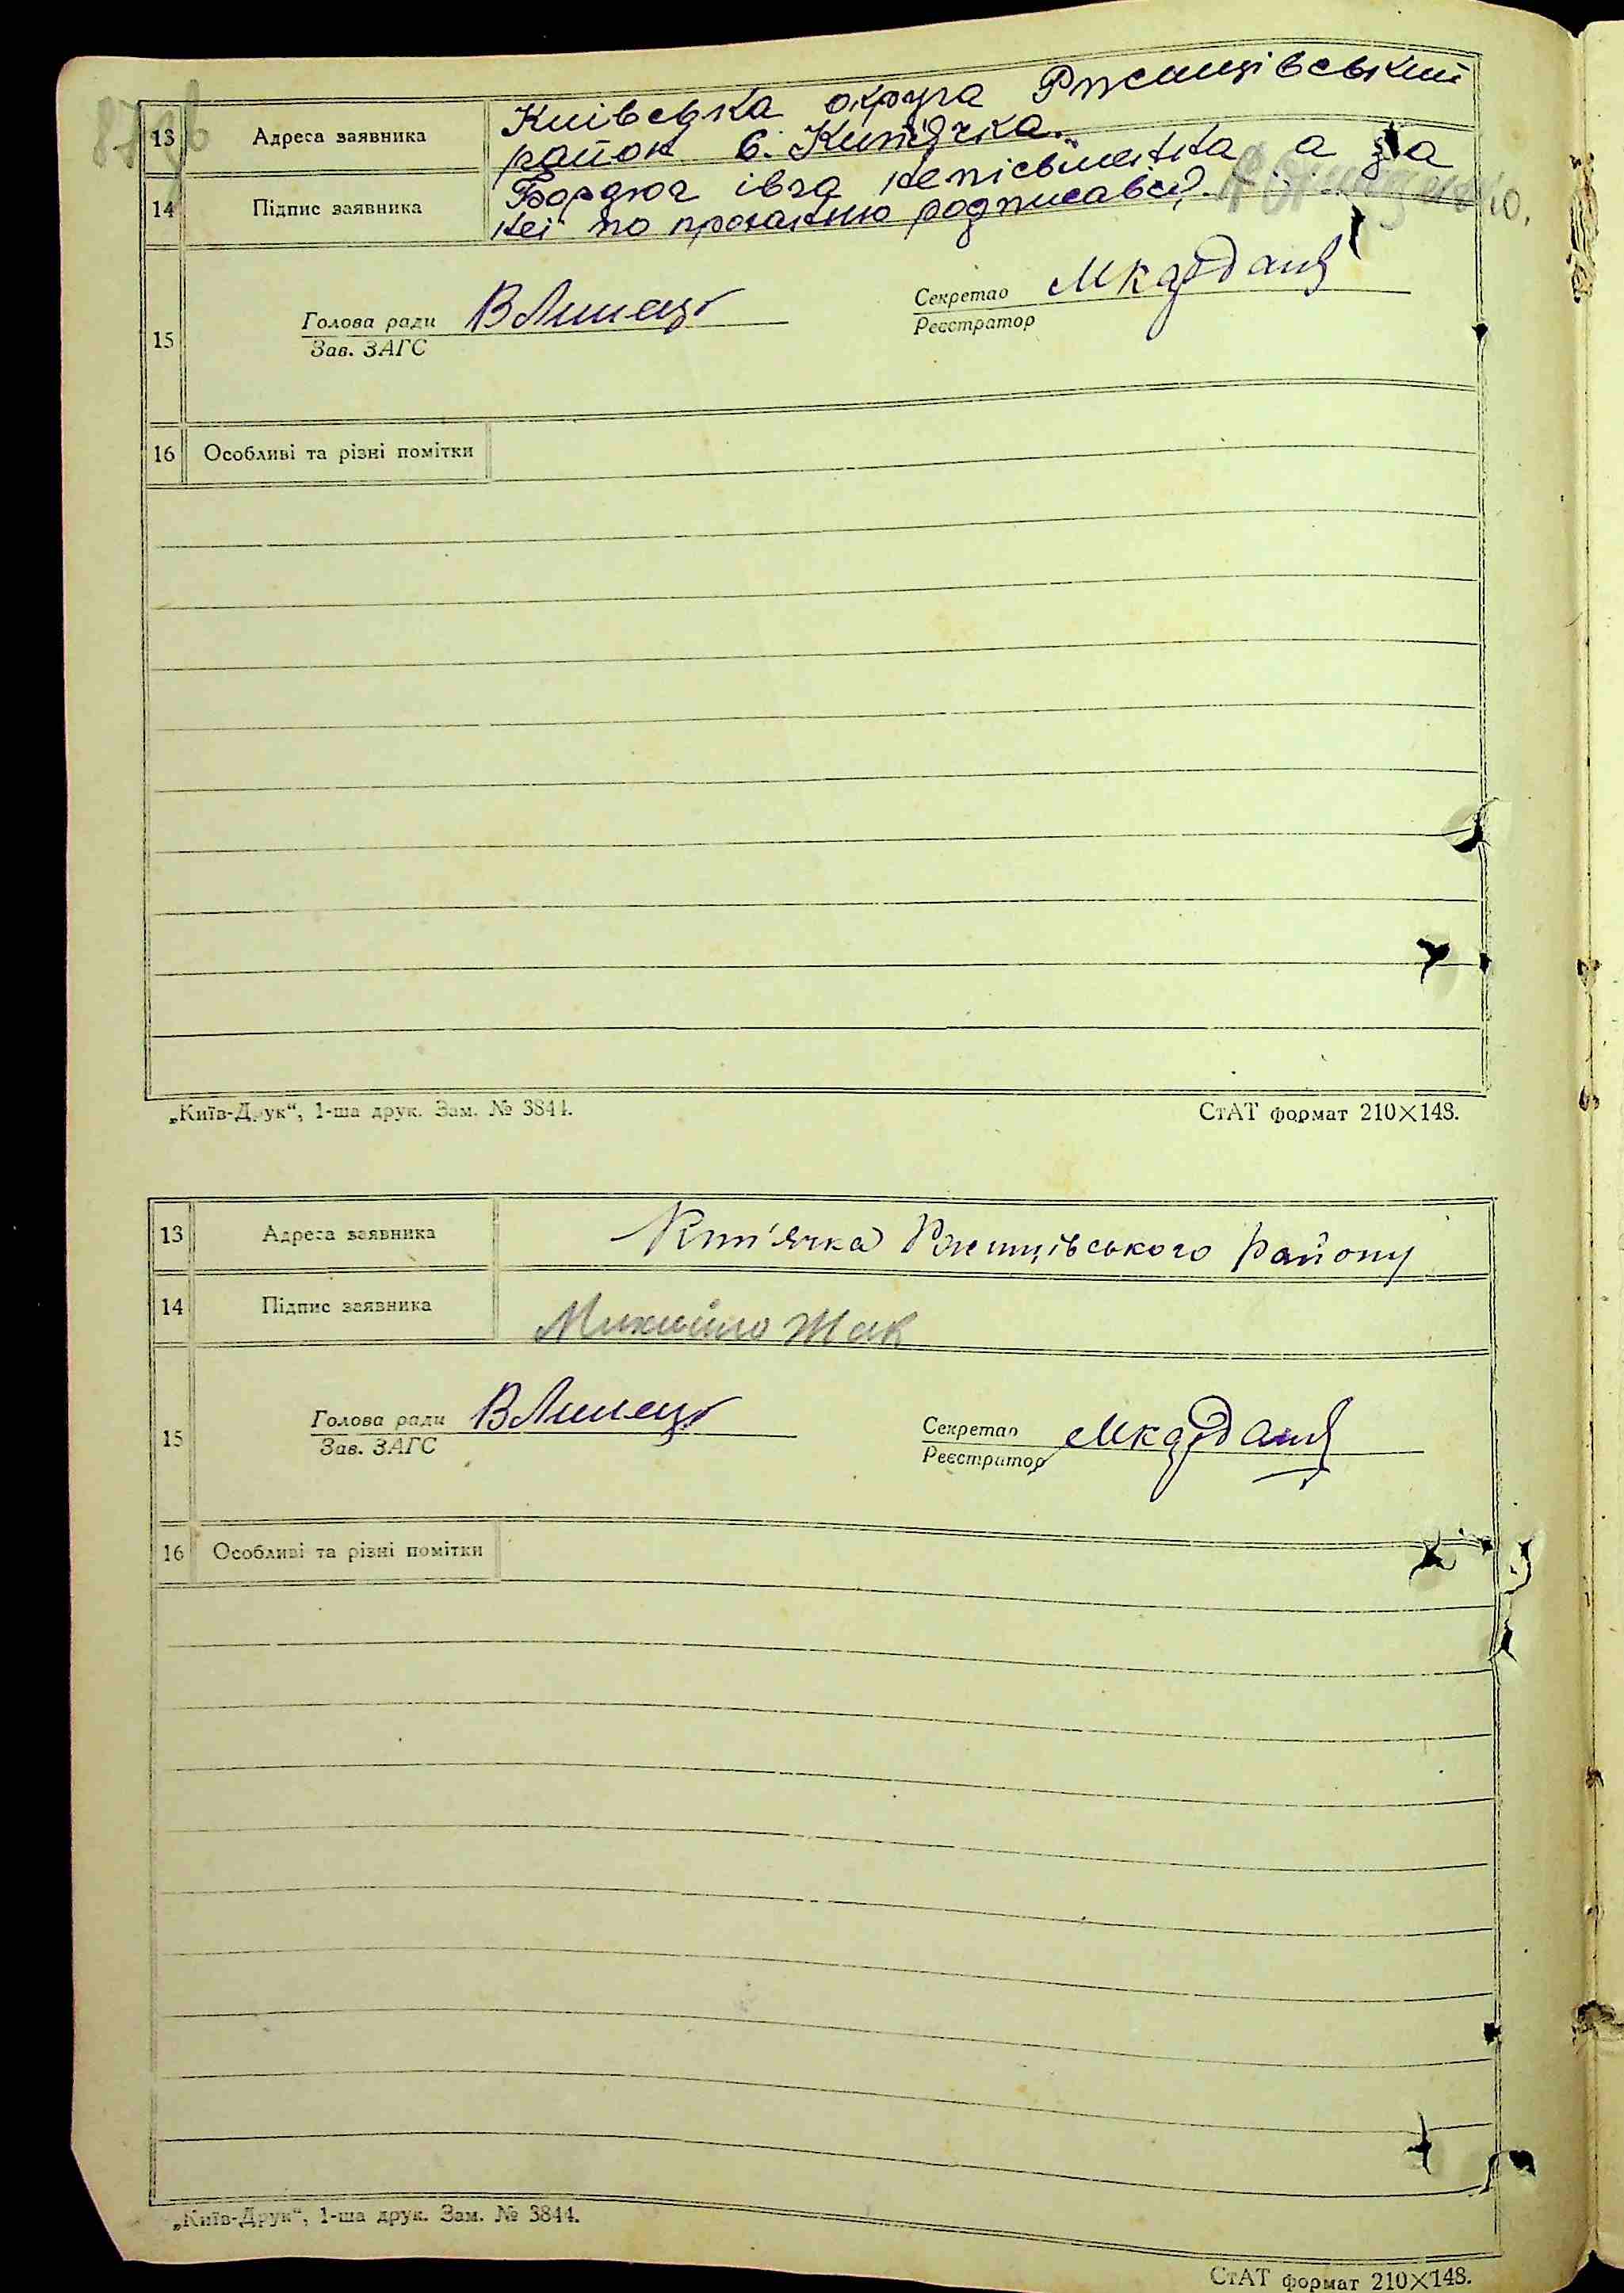 87зв
13 Адреса заявника Киівська округа Ржищівський
район с. Кип'ячка.
14 Підпис заявника Бордюг івга неписьменна а за
неі по проханню родписавсь
15 Голова ради Секретар
Зав. ЗАГС Реєстратор
16 Особливі та різні помітки
„Київ-Друк“, 1-ша друк. Зам. № 3844.
СтАТ формат 210×148.
13 Адреса заявника Кип'ячка Ржищівського Району
14 Підпис заявника Михайло Жак
15 Голова ради Секретар
Зав. ЗАГС Реєстратор
16 Особливі та різні помітки
„Київ-Друк“, 1-ша друк. Зам. № 3844.
СтАТ формат 210×148.